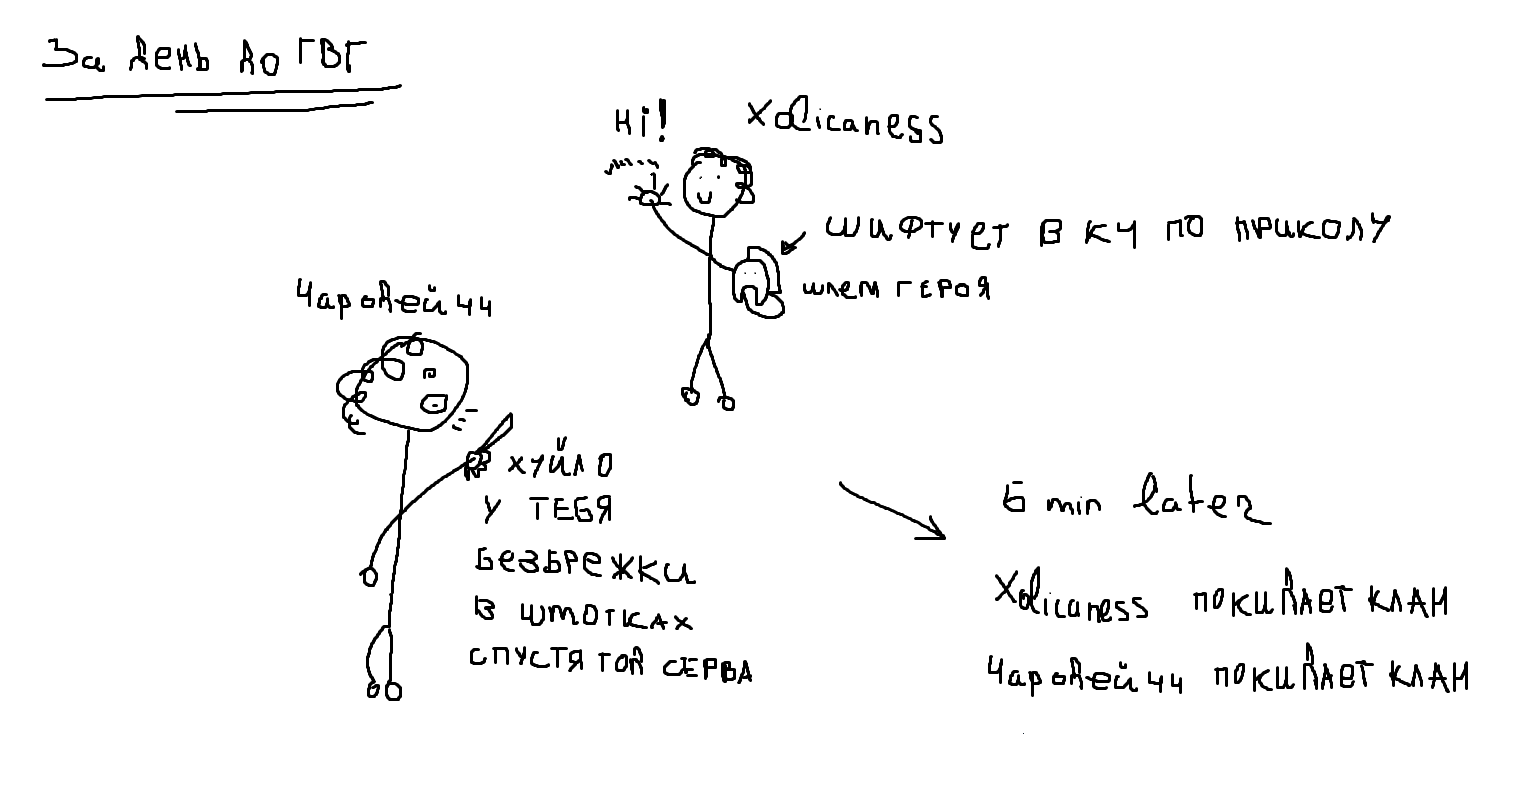 За день до ГВГ
Hi!
Xolicaness
ШИФТУЕТ В КЧ ПО ПРИКОЛУ
ШЛЕМ ГЕРОЯ
Чародей 44
ХУЙЛО
У ТЕБЯ
БЕЗБРЕЖКИ
В ШМОТКАХ
СПУСТЯ ГОД СЕРВА
6 min later
Xolicaness ПОКИДАЕТ КЛАН
Чародей 44 ПОКИДАЕТ КЛАН